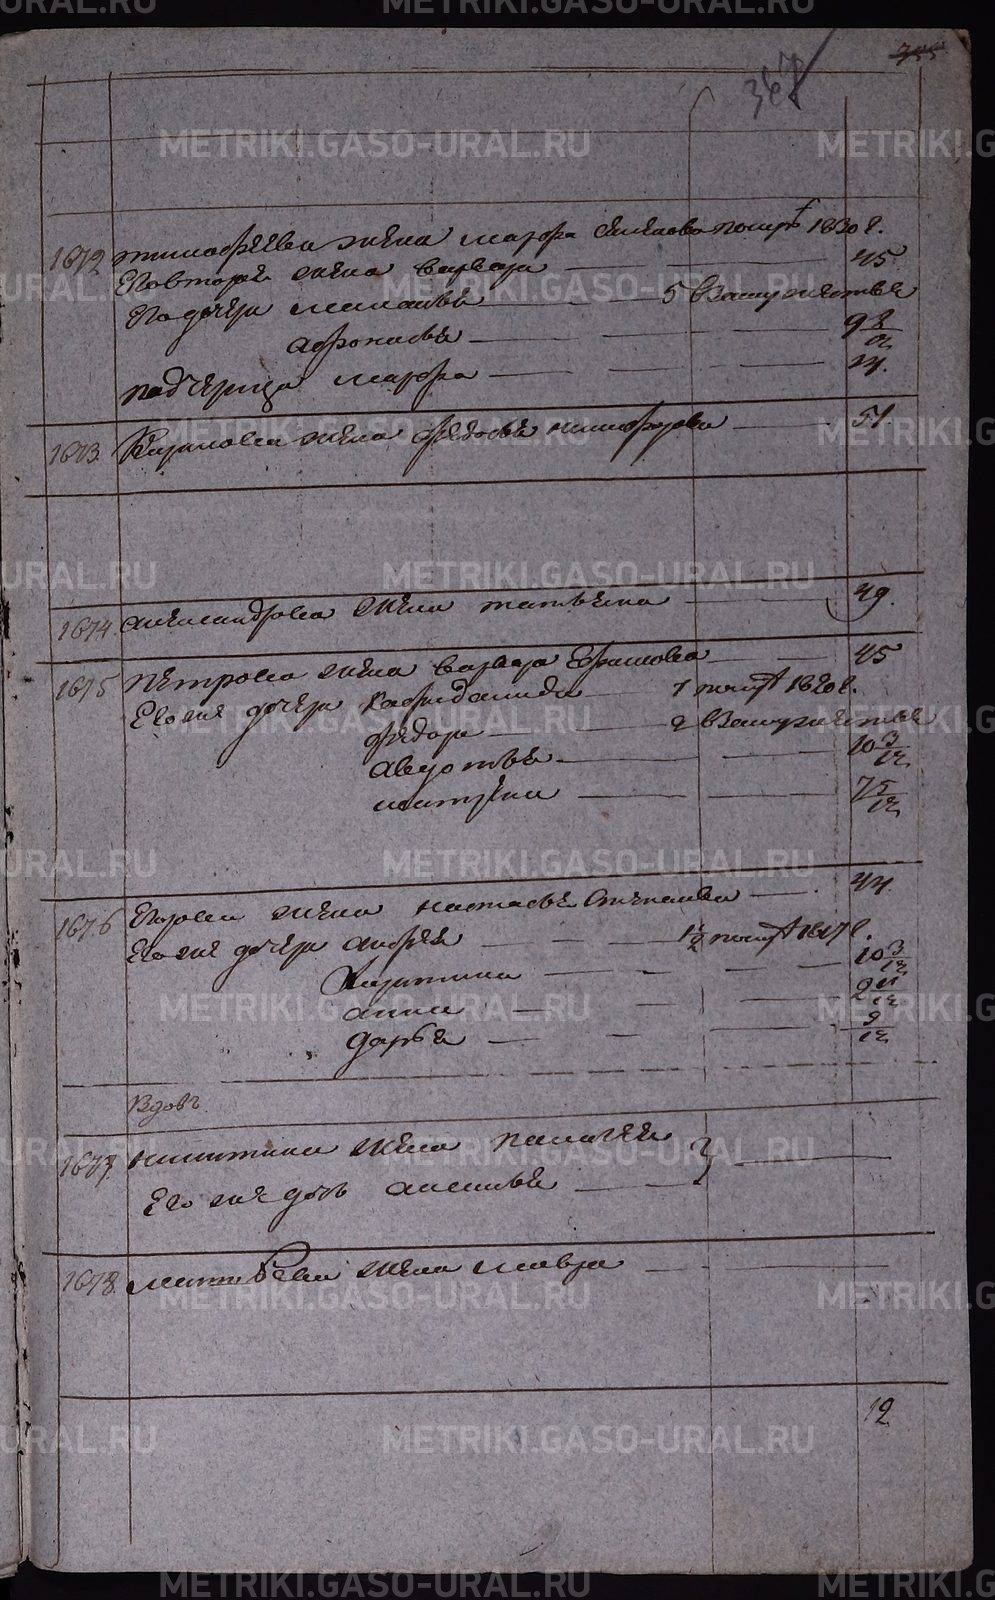 367
1672 тимофеева жена марфа Яковлева помре 1830 г.
Его вторая жена варвара 45
Его дочери маланья 5 в замужестве
афонасья 9 8/12
падчерица марфа 14.
1673. Кирилова жена федосья никифорова 51.
1674. александрова жена татьяна 49.
1675 петрова жена варвара Ефимова 45
Его же дочери 1 1820 г.
федора 2 в замужестве
авдотья 10 3/12
матрена 7 5/12
1676 Егорова жена настасья Степанова 44
Его же дочери 1 1/2 1817 г.
Харитина 10 3/12
анна 2 11/12
дарья 9/12
Вдовы
1677. никитина жена палагея
Его же дочь аксинья
1678. матвеева жена мавра
12
METRIKI.GASO-URAL.RU